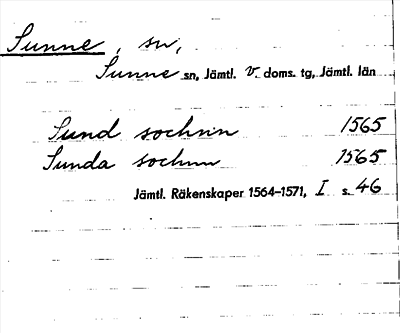 Sunne, sn,
Sunne sn, Jämtl. v. doms. tg, Jämtl. län
Sund sochnn 1565
Sunda sochnn 1565
Jämtl. Räkenskaper 1564–1571, I s. 46